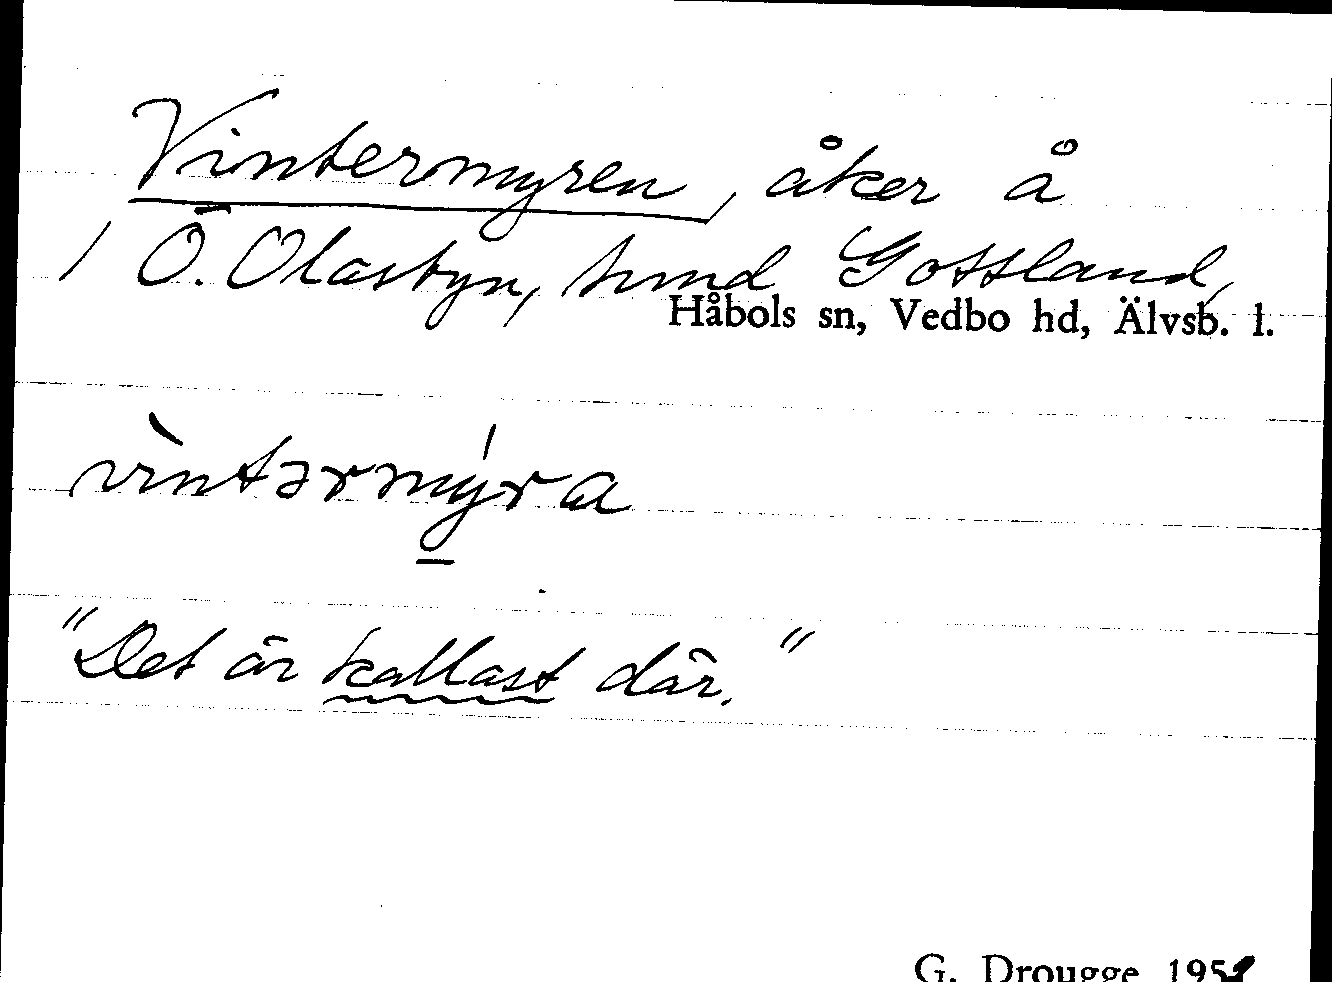 Vintermyren, åker å
/ Ö. Olasbyn, hmd Gottland,
Håbols sn, Vedbo hd, Älvsb. l.
vìntərmýra
"Det är kallast där."
G. Drougge 195